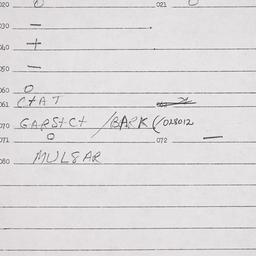 020 O 021 O
030 —
040 +
050 —
060 O
061 C+A T
070 GARS+C+ /BARK (/028012
071 O 072 —
080 MULGAR